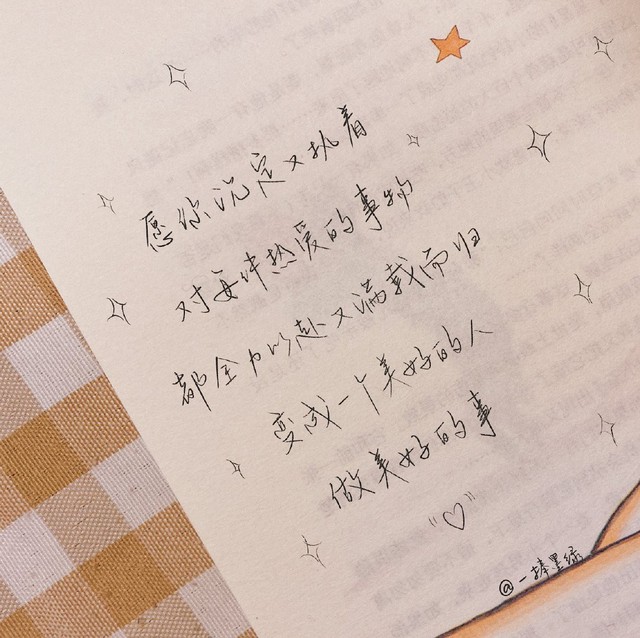 愿你沉定又执着
对每件热爱的事物
都全力以赴又满载而归
变成一个美好的人
做美好的事
"♡"
@一捧墨绿